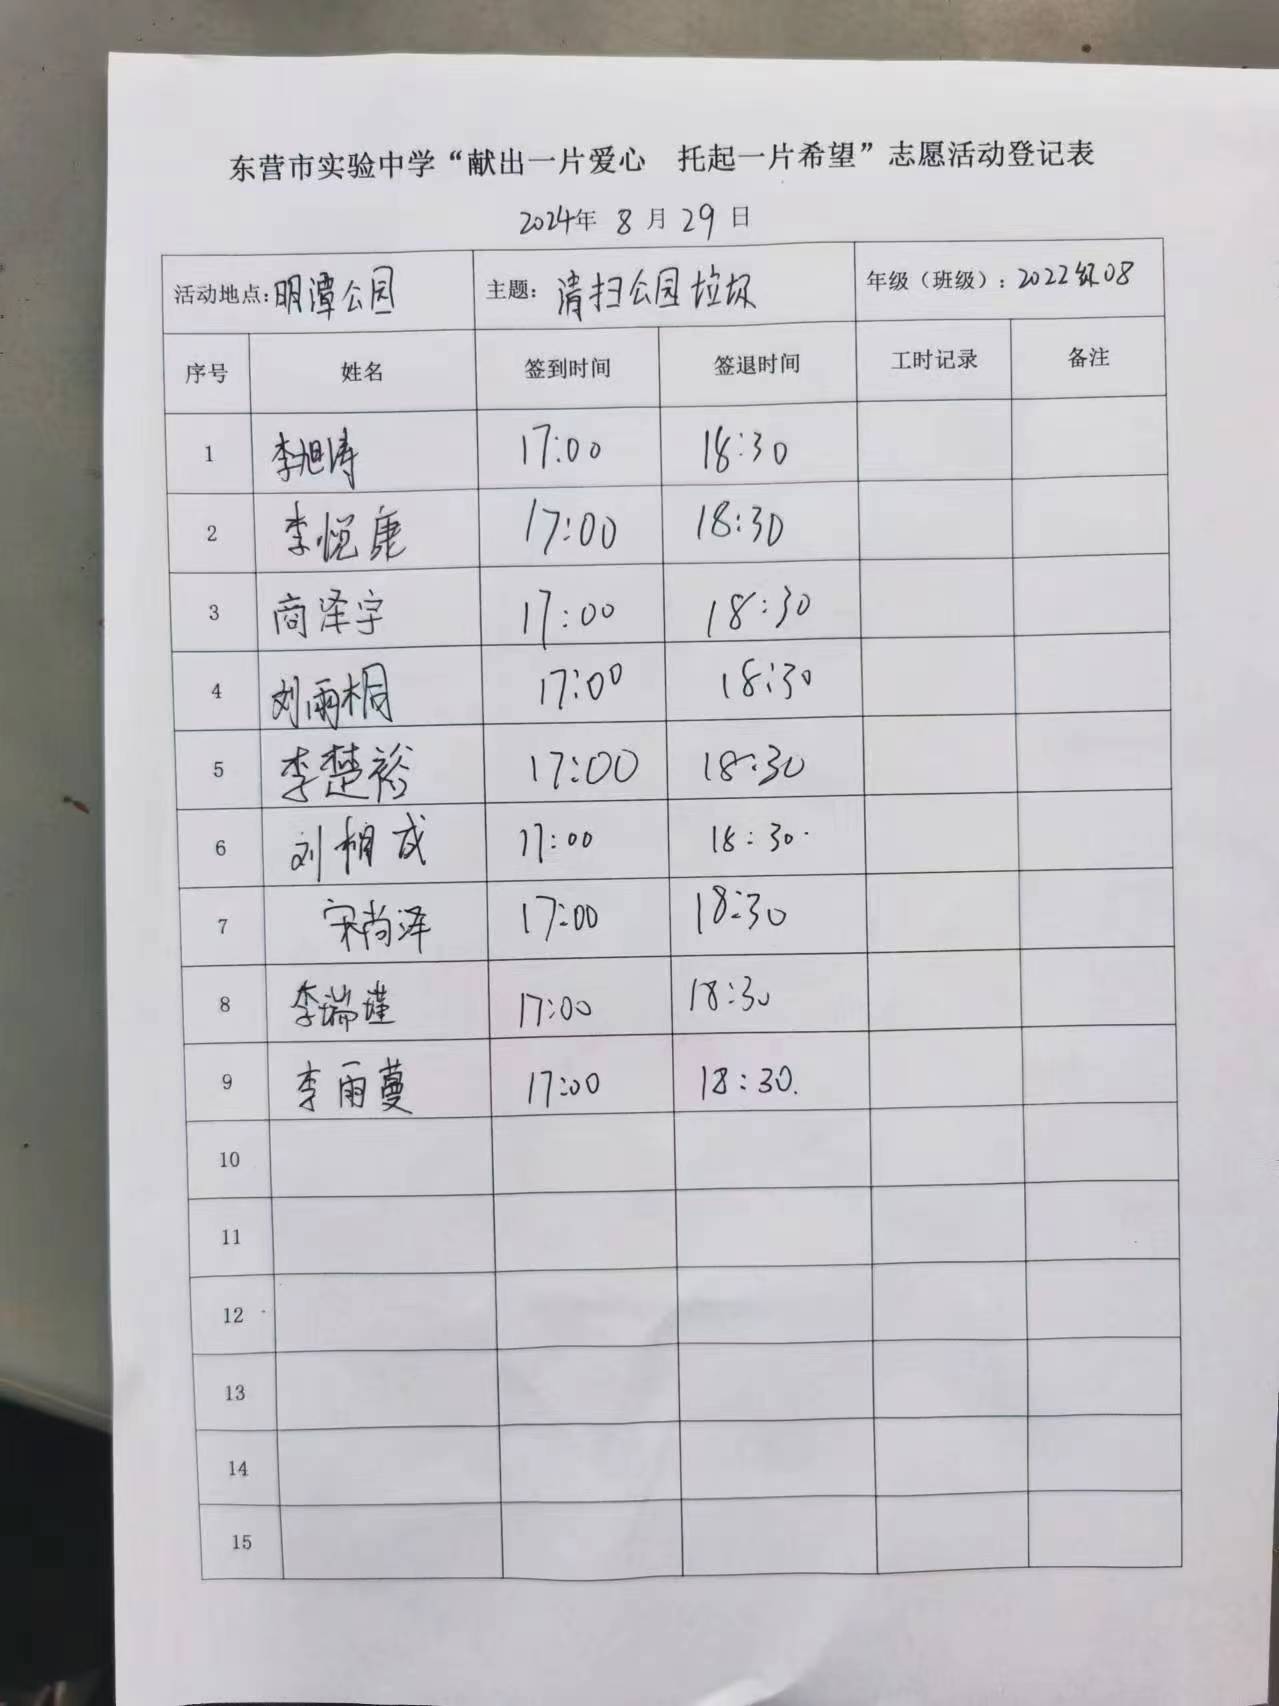 东营市实验中学“献出一片爱心　托起一片希望”志愿活动登记表
2024年 8 月 29 日
活动地点：明潭公园 主题：清扫公园垃圾 年级（班级）：2022级08
序号 姓名 签到时间 签退时间 工时记录 备注
1 李旭涛 17:00 18:30
2 李悦康 17:00 18:30
3 商泽宇 17:00 18:30
4 刘雨桐 17:00 18:30
5 李楚裕 17:00 18:30
6 刘 成 17:00 18:30
7 宋尚泽 17:00 18:30
8 李瑞瑾 17:00 18:30
9 李雨蔓 17:00 18:30.
10
11
12
13
14
15